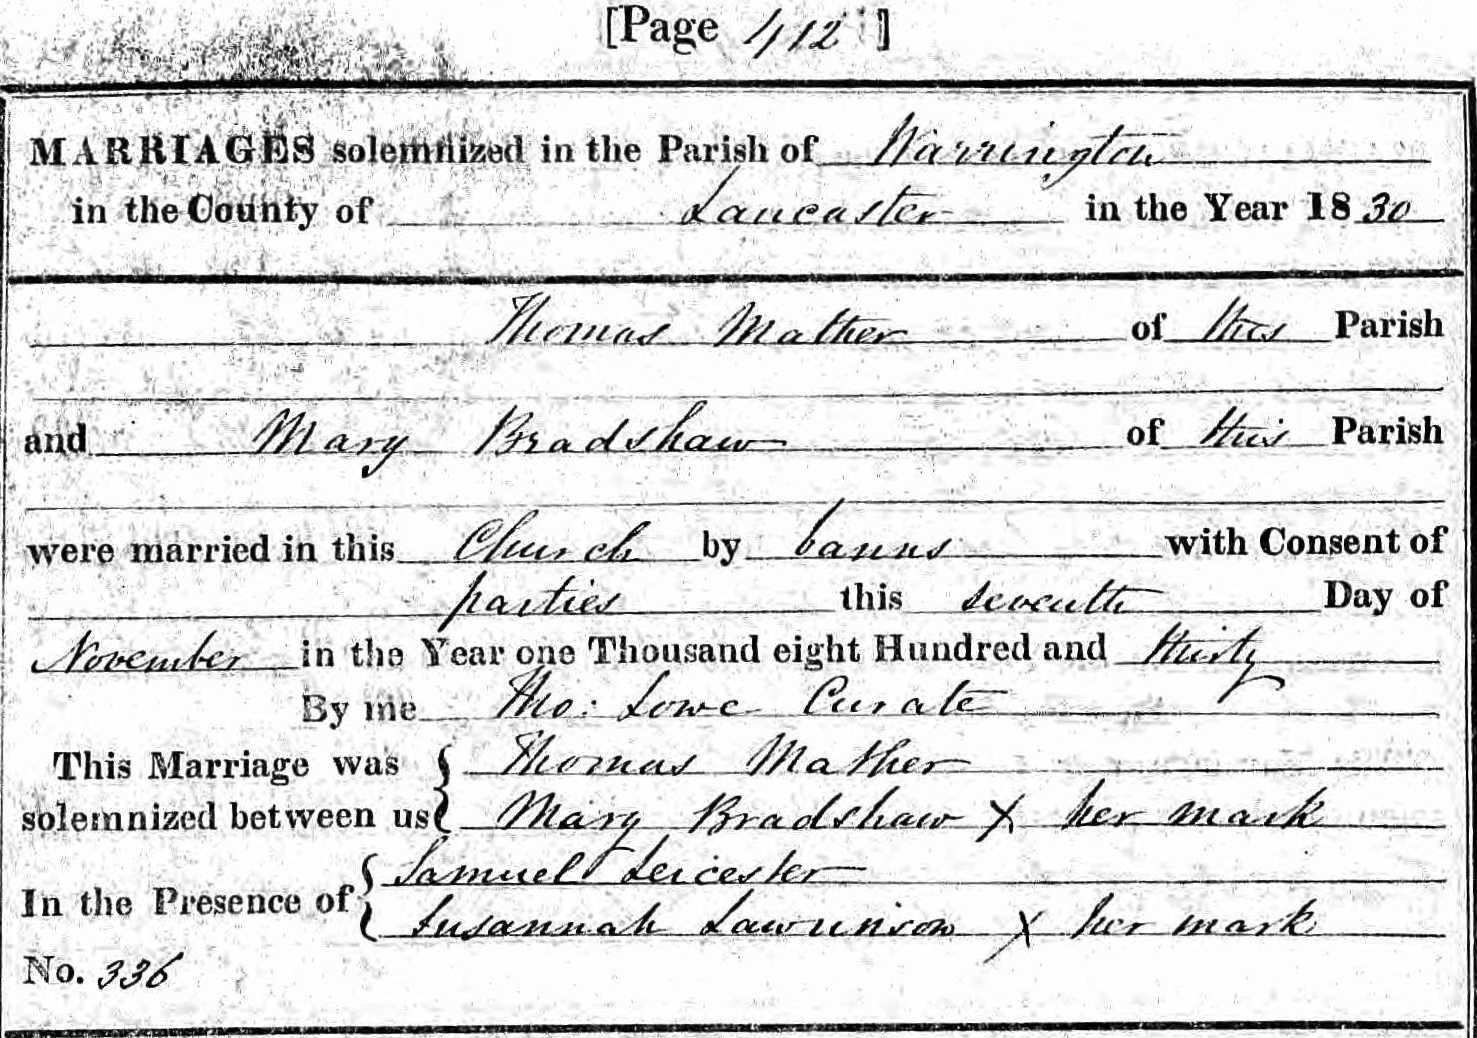 [Page 412]
MARRIAGES solemnized in the Parish of Warrington
in the County of Lancaster in the Year 1830
Thomas Mather of this Parish
and Mary Bradshaw of this Parish
were married in this Church by banns with Consent of
parties this seventh Day of
November in the Year one Thousand eight Hundred and thirty
By me Tho: Lowe Curate
This Marriage was { Thomas Mather
solemnized between us { Mary Bradshaw X her mark
In the Presence of { Samuel Leicester
Susannah Lawrinson X her mark
No. 336